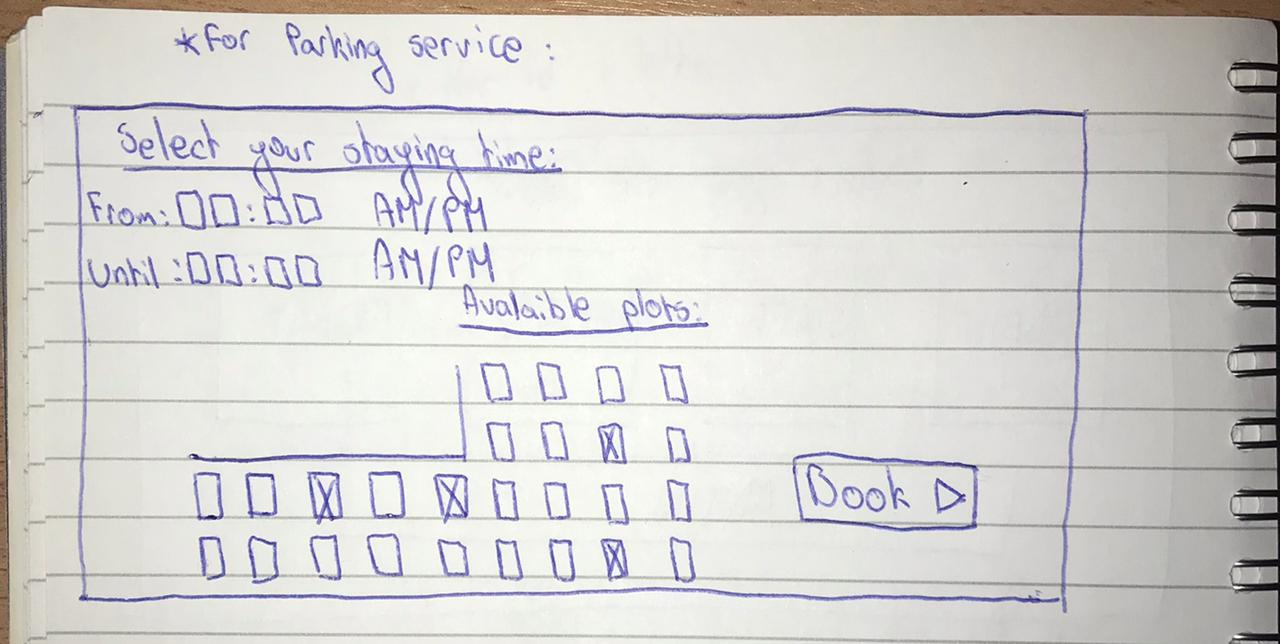 *For Parking service:
Select your staying time:
From: □□:□□ AM/PM
Until: □□:□□ AM/PM
Avalaible plots:
Book ▷